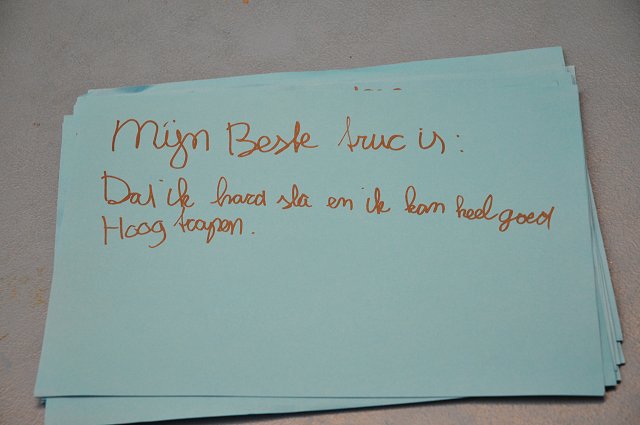 Mijn Beste truc is:
Dat ik hard sla en ik kan heel goed
Hoog trapen.